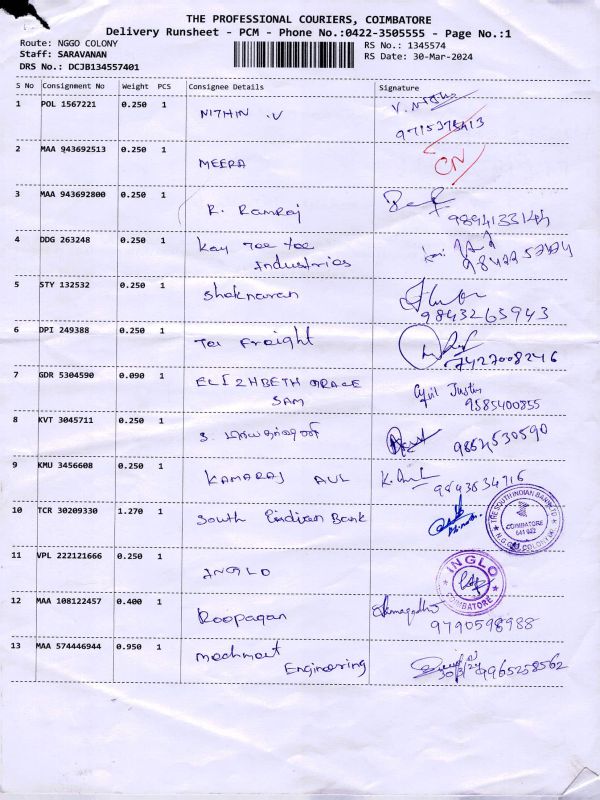 THE PROFESSIONAL COURIERS, COIMBATORE
Delivery Runsheet - PCM - Phone No.:0422-3505555 - Page No.:1
Route: NGGO COLONY
RS No.: 1345574
Staff: SARAVANAN
RS Date: 30-Mar-2024
DRS No.: DCJB134557401
S No Consignment No Weight PCS Consignee Details Signature
1 POL 1567221 0.250 1 NITHIN .V
2 MAA 943692513 0.250 1 MEERA CN
3 MAA 943692800 0.250 1 R. Ramraj 9894133144
4 DDG 263248 0.250 1 Kay Tee Tee
Industries
5 STY 132532 0.250 1 9843263943
6 DPI 249388 0.250 1 Freight 7427008246
7 GDR 5304590 0.090 1 GRACE Cyril Justin
SAM 9585400855
8 KVT 3045711 0.250 1 S.
9 KMU 3456608 0.250 1 KAMARAJ AUL 9843634716
10 TCR 30209330 1.270 1 South Indian Bank
THE SOUTH INDIAN BANK LTD
COIMBATORE
641 022
N.G.G.O. COLONY
11 VPL 222121666 0.250 1 INGLO
INGLO
COIMBATORE
12 MAA 108122457 0.400 1 9790598988
13 MAA 574446944 0.950 1 Mechmet
Engineering 30/3/24 9965258562